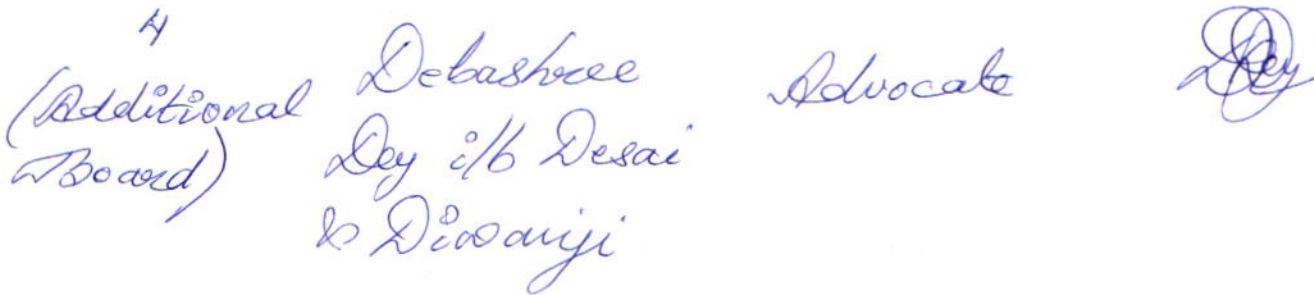 4
(Additional
Board)
Debashree
Dey i/b Desai
& Diwanji
Advocate
Dey